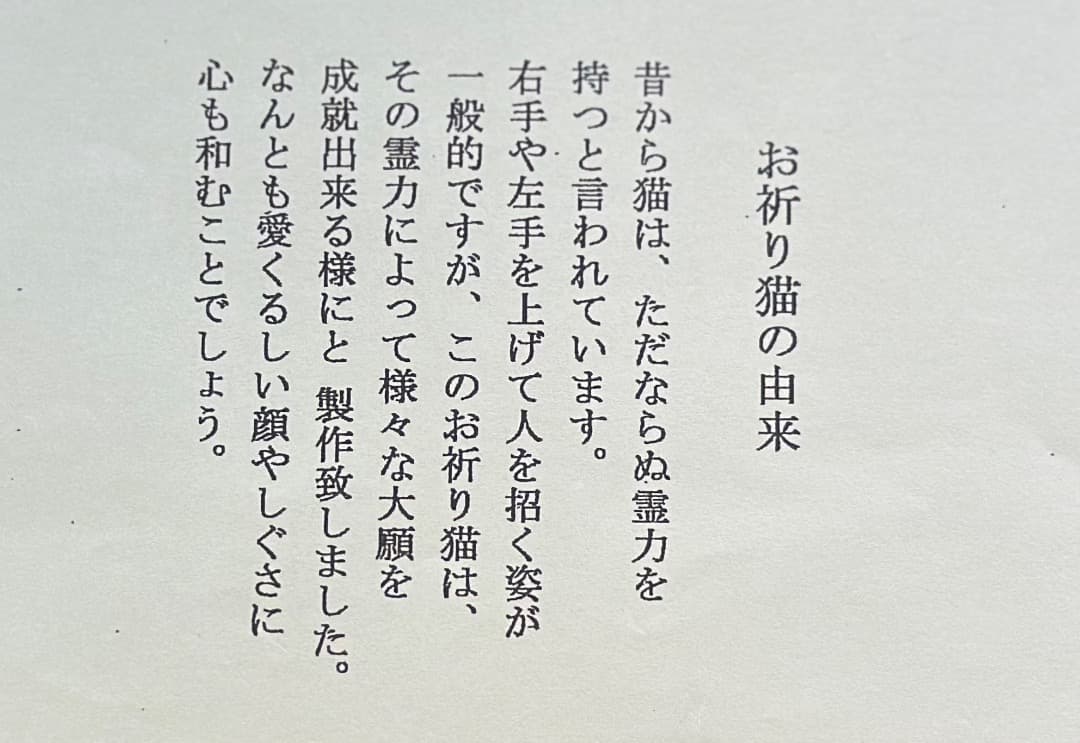 お祈り猫の由来
昔から猫は、ただならぬ霊力を
持つと言われています。
右手や左手を上げて人を招く姿が
一般的ですが、このお祈り猫は、
その霊力によって様々な大願を
成就出来る様にと 製作致しました。
なんとも愛くるしい顔やしぐさに
心も和むことでしょう。